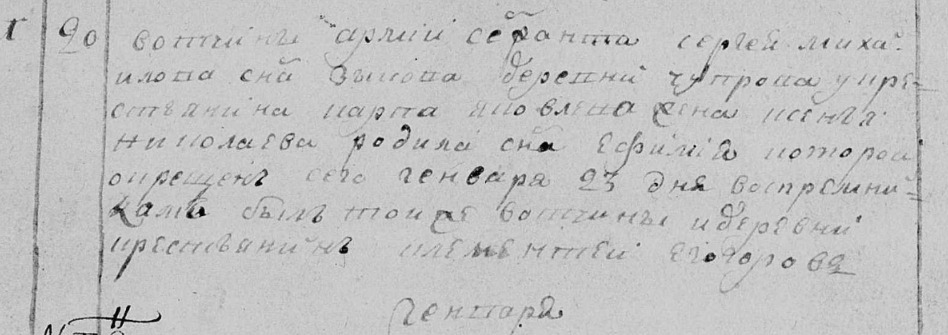 20 вотчины армии сержанта сергея миха
илова сна зыкова деревни чупрова у кре-
стьянина карпа яковлева жена ксенья
николаева родила сна ефимия которой
окрещенъ сего генваря 23 дня воспремни-
камъ былъ тои же вотчины и деревни
крестьянинъ клементеи егорове
генваря